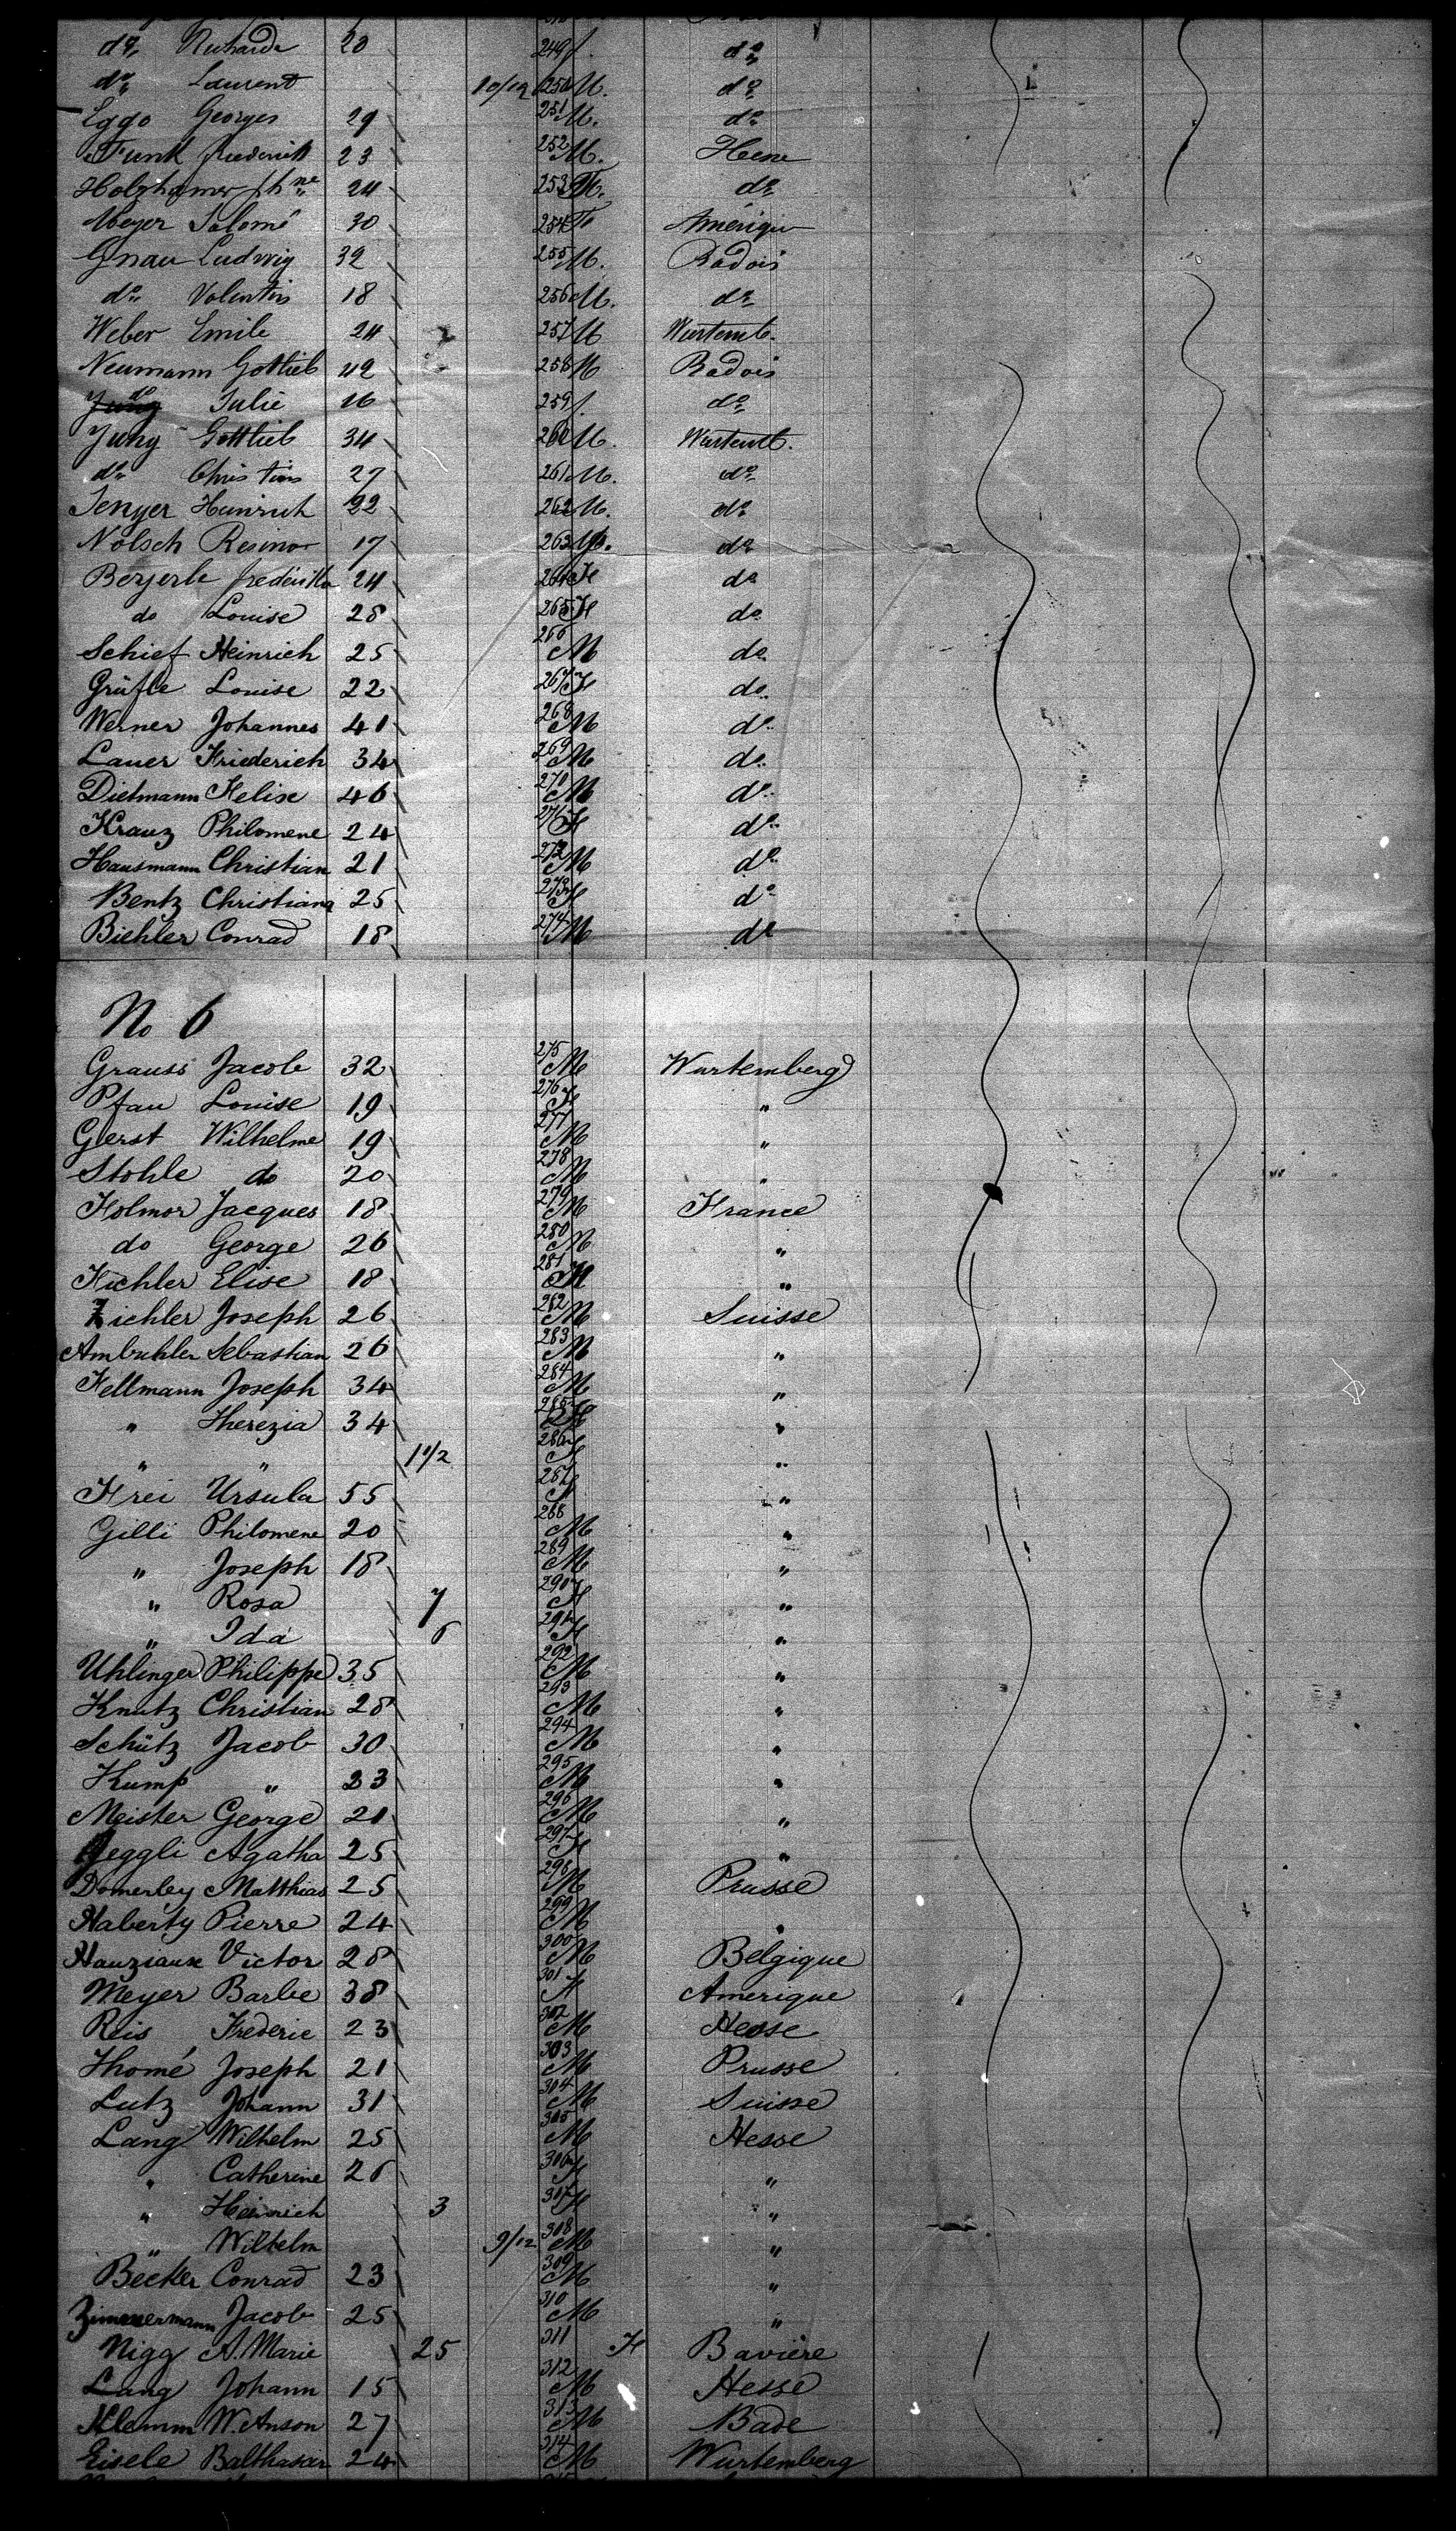 do Richarde 20 249 f. do
do Laurent 10/12 250 M. do
Eggo Georges 29 251 M. do
Funk Friederich 23 252 M. Hesse
Holzhamer Phne 24 253 do
Meyer Salomé 30 254 F Amérique
Gnau Ludwig 32 255 M. Badois
do Valentin 18 256 M. do
Weber Emile 24 257 M Wurtemb.
Neumann Gottlieb 42 258 M Badois
do Julie 16 259 f. do
Jung Gottlieb 34 260 M. Wurtemb.
do Christian 27 261 M. do
Senger Heinrich 22 262 M. do
Nölsch Resina 17 263 do
Beyerle Frederika 24 264 F do
do Louise 28 265 F do
Schief Heinrich 25 266 M do
Grüfle Louise 22 267 F do
Werner Johannes 41 268 M do
Lauer Friederich 34 269 M do
Dietmann Felise 46 270 M do
Krauz Philomene 24 271 F do
Hausmann Christian 21 272 M do
Bentz Christiana 25 273 F do
Biehler Conrad 18 274 M do
No 6
Grauss Jacob 32 275 M Wurtemberg
Pfau Louise 19 276 F "
Gerst Wilhelme 19 277 M "
Stohle do 20 278 M "
Folmor Jacques 18 279 M France
do George 26 280 M "
Fichler Elise 18 281 "
Zichler Joseph 26 282 M Suisse
Ambuhler Sebastian 26 283 M "
Fellmann Joseph 34 284 M "
" Therezia 34 285 "
" " 1 1/2 286 F "
Frei Ursula 55 287 F "
Gilli Philomene 20 288 M "
" Joseph 18 289 M "
" Rosa 7 290 F "
" Ida 6 291 F "
Uhlinger Philippe 35 292 M "
Knutz Christian 28 293 M "
Schütz Jacob 30 294 M "
Kump " 23 295 M "
Meister George 21 296 M "
Jeggli Agatha 25 297 F "
Domerley Matthias 25 298 M Prusse
Haberty Pierre 24 299 M "
Hauzsause Victor 28 300 M Belgique
Meyer Barbe 38 301 F Amerique
Reis Frederic 23 302 M Hesse
Thomé Joseph 21 303 M Prusse
Lutz Johann 31 304 M Suisse
Lang Wilhelm 25 305 M Hesse
" Catherine 26 306 F "
" Heinrich 3 307 "
" Wilhelm 9/12 308 M "
Becker Conrad 23 309 M "
Zimmermann Jacob 25 310 M "
Nigg A. Marie 25 311 F Baviere
Lang Johann 15 312 M Hesse
Klemm W. Anson 27 313 M Bade
Eisele Balthasar 24 314 M Wurtemberg